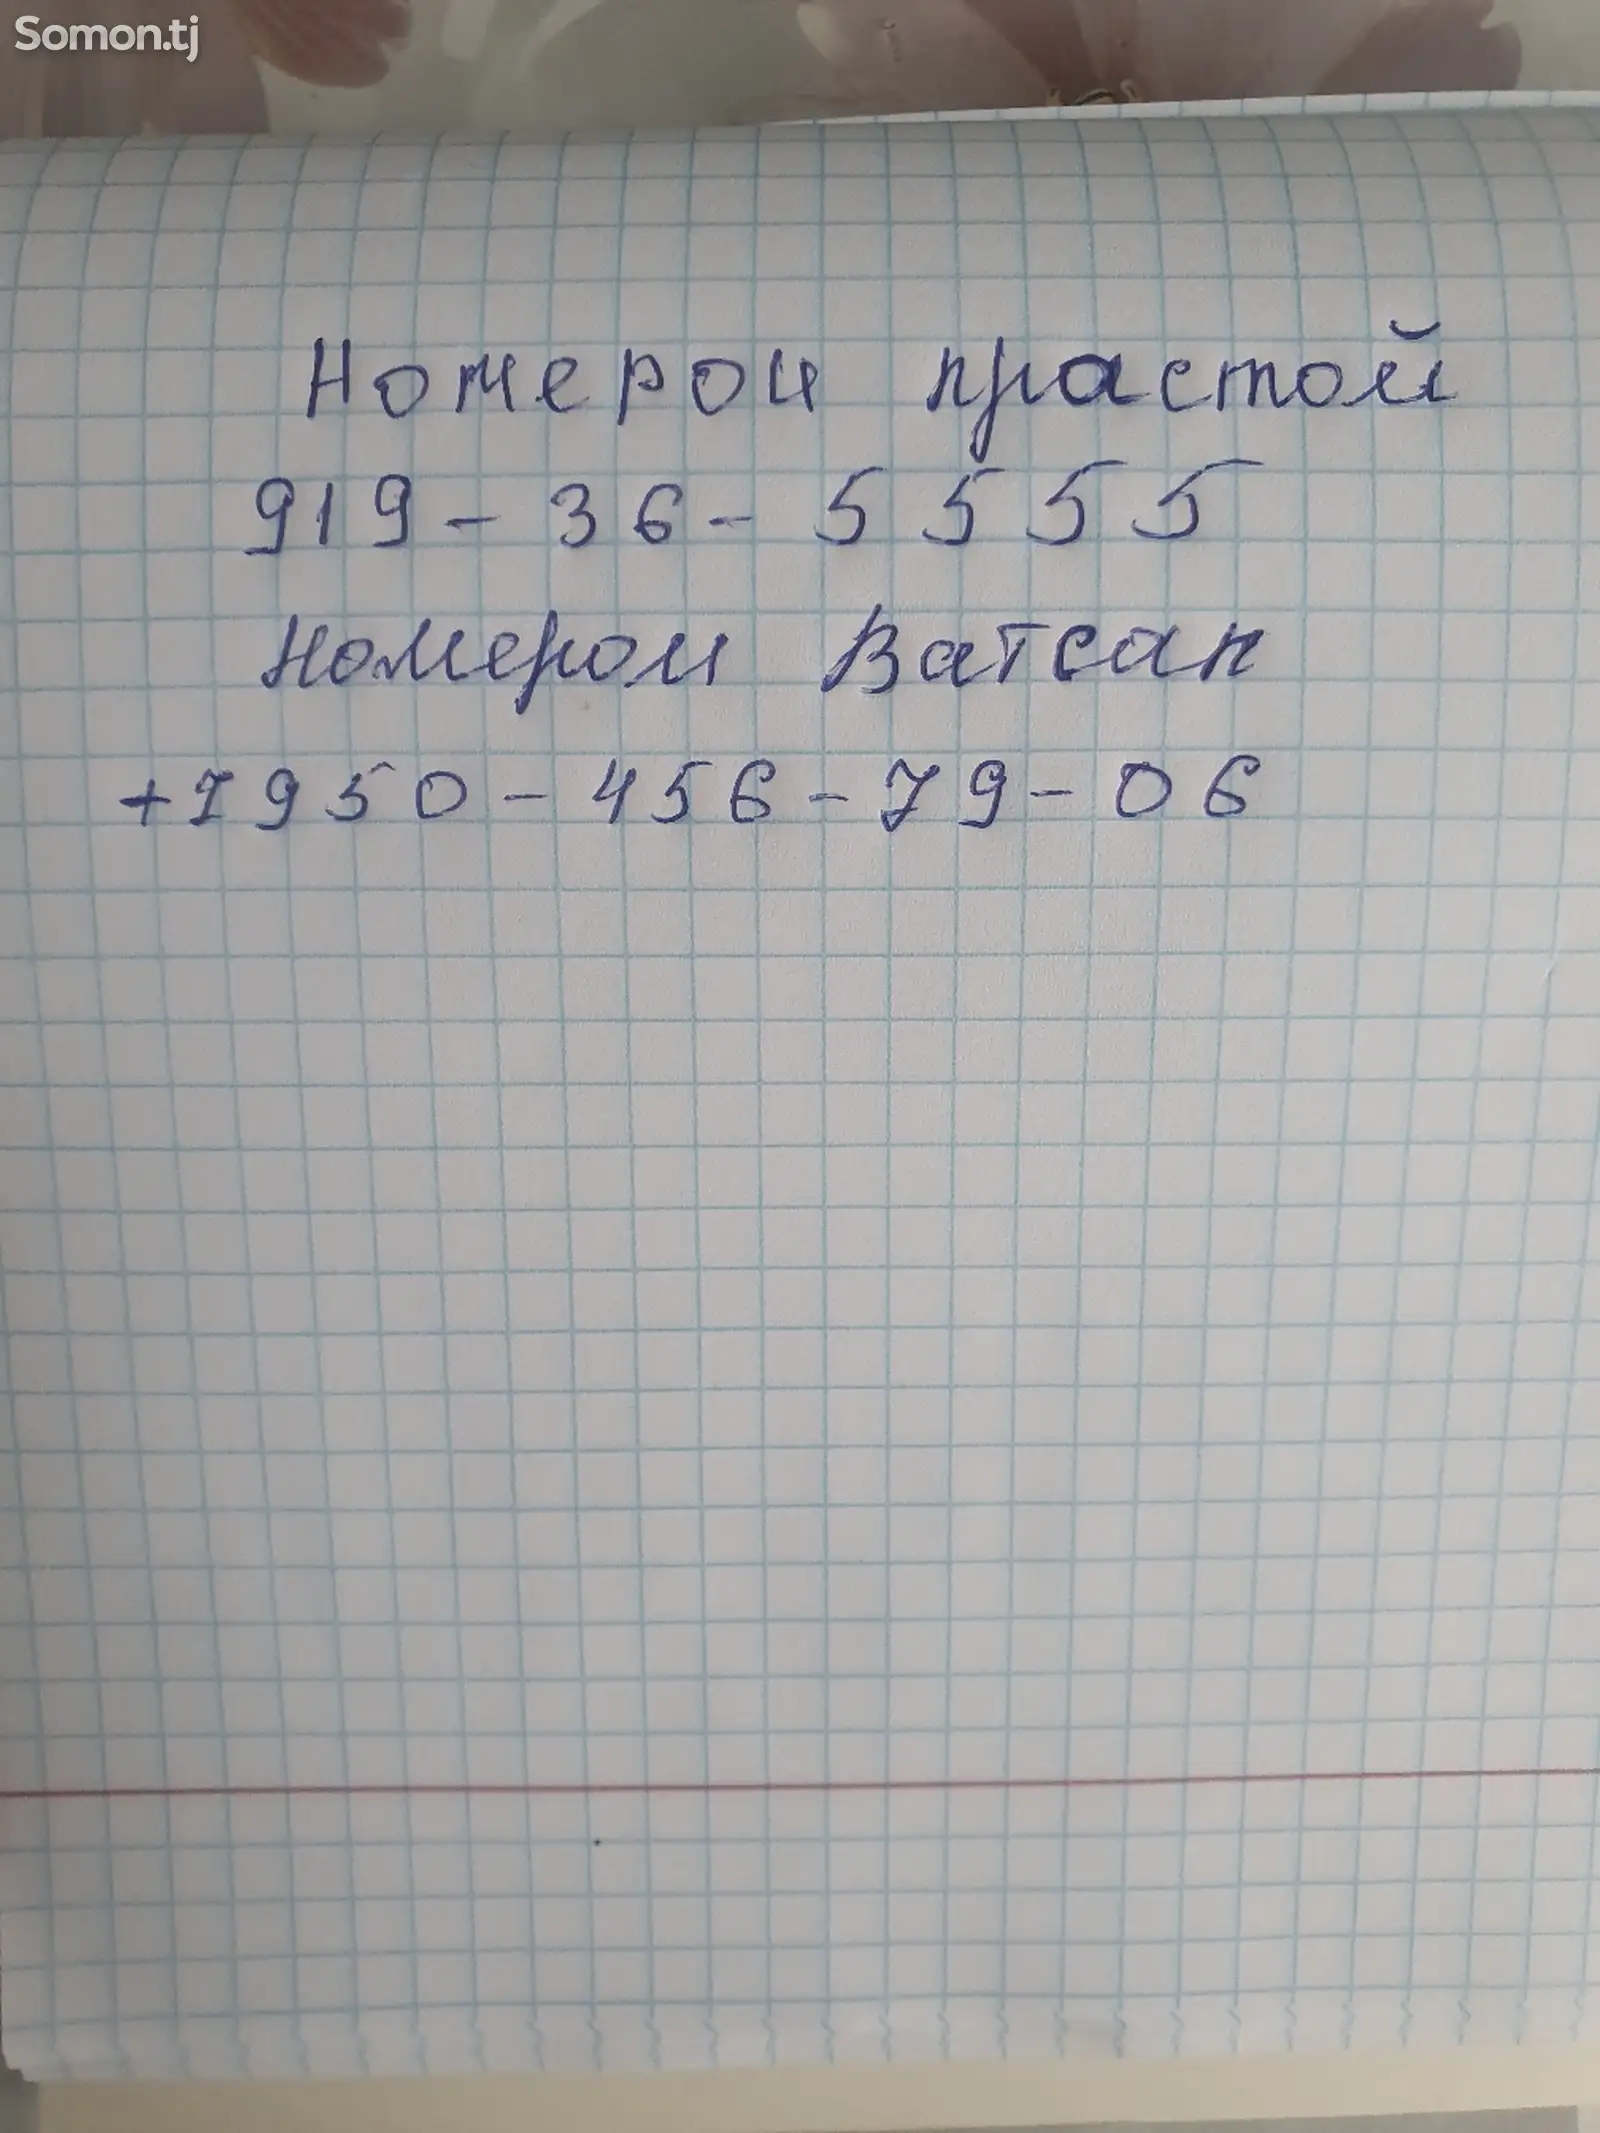 Somon.tj
Номерои прастой
919-36-5555
Номерои Ватсап
+7950-456-79-06